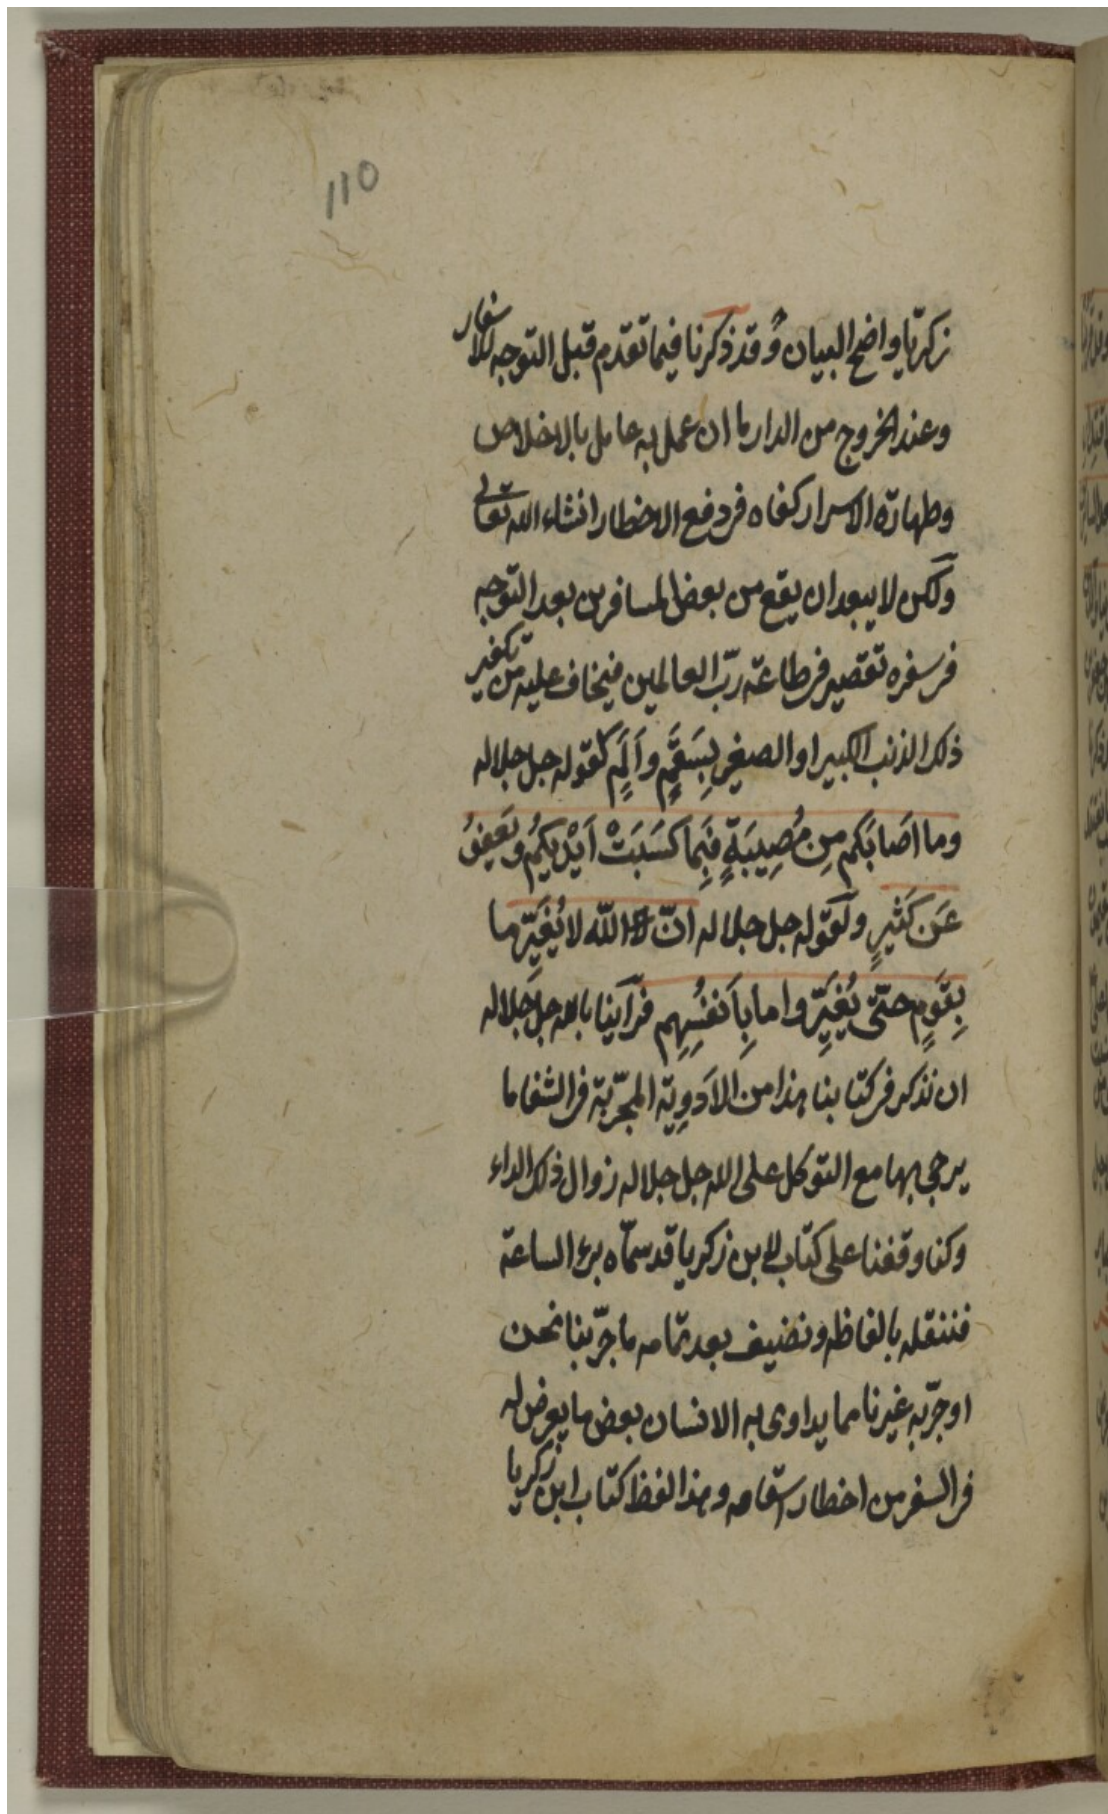 110
زكريا واضح البيان وقد ذكرنا فيما تقدم قبل التوجه للاسفار
وعند الخروج من الدار ما ان عمل به عامل بالاخلاص
وطهارة الاسرار كفاه فى دفع الاخطار انشاء الله تعالى
ولكن لا يبعد ان يقع من بعض المسافرين بعد التوجه
فى سفره تقصير فى طاعة ربّ العالمين فيخاف عليه من تكفير
ذلك الذنب الكبير او الصغير بِسَقَمٍ وَاَلَمٍ كقوله جل جلاله
وما اَصَابَكم مِن مُصِيبَةٍ فَبِمَا كَسَبَتْ اَيْدِيكُم وَيَعفِوُ
عَن كَثيرٍ وكقوله جل جلاله انّ الله لا يُغَيِّرُ ما
بِقَومٍ حتّى يُغَيِّروا ما بِاَنفُسِهِم فرآينا بالله جل جَلاله
ان نذكر فى كتابنا هذا من الاَدوِية المجرّبة فى الشفا ما
يرجى بها مع التوكل على الله جل جلاله زوال ذلك الداء
وكنا وقفنا على كتاب لابن زكريا قد سمّاه برء الساعة
فننقله بالفاظه ونضيف بعد تمامه ما جرّبنا نحن
او جرّبه غيرنا مما يداوى به الانسان بعض ما يعرض له
فى السفر من اخطار اسقامه وهذا لفظ كتاب ابن زكريا